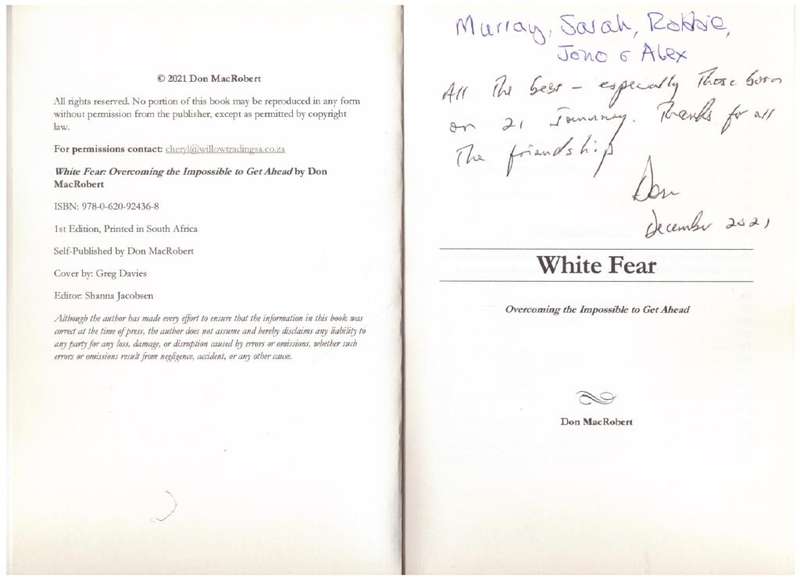 © 2021 Don MacRobert
All rights reserved. No portion of this book may be reproduced in any form
without permission from the publisher, except as permitted by copyright
law.
For permissions contact: cheryl@willowtradingsa.co.za
White Fear: Overcoming the Impossible to Get Ahead by Don
MacRobert
ISBN: 978-0-620-92436-8
1st Edition, Printed in South Africa
Self-Published by Don MacRobert
Cover by: Greg Davies
Editor: Shanna Jacobsen
Although the author has made every effort to ensure that the information in this book was
correct at the time of press, the author does not assume and hereby disclaims any liability to
any party for any loss, damage, or disruption caused by errors or omissions, whether such
errors or omissions result from negligence, accident, or any other cause.
Murray, Sarah, Robbie,
Jono & Alex
All the best – especially those born
on 21 January. Thanks for all
the friendship
Don
December 2021
White Fear
Overcoming the Impossible to Get Ahead
Don MacRobert